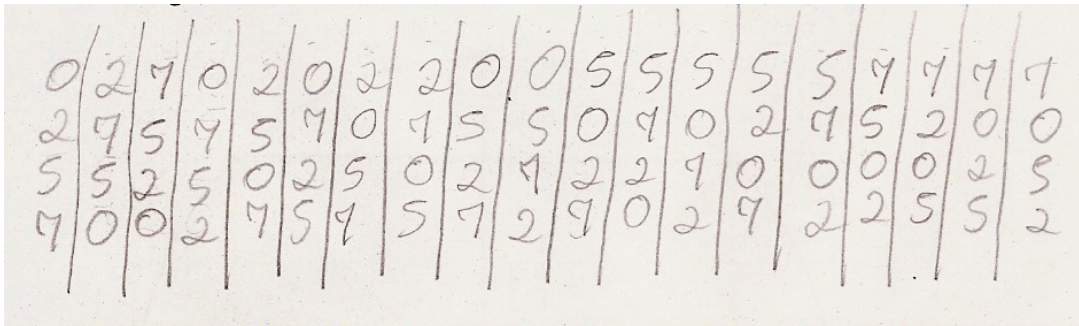 0 2 7 0 2 0 2 2 0 0 5 5 5 5 5 7 7 7 7
2 7 5 7 5 7 0 7 5 5 0 7 0 2 7 5 2 0 0
5 5 2 5 0 2 5 0 2 7 2 2 7 0 0 0 0 2 5
7 0 0 2 7 5 7 5 7 2 7 0 2 7 2 2 5 5 2